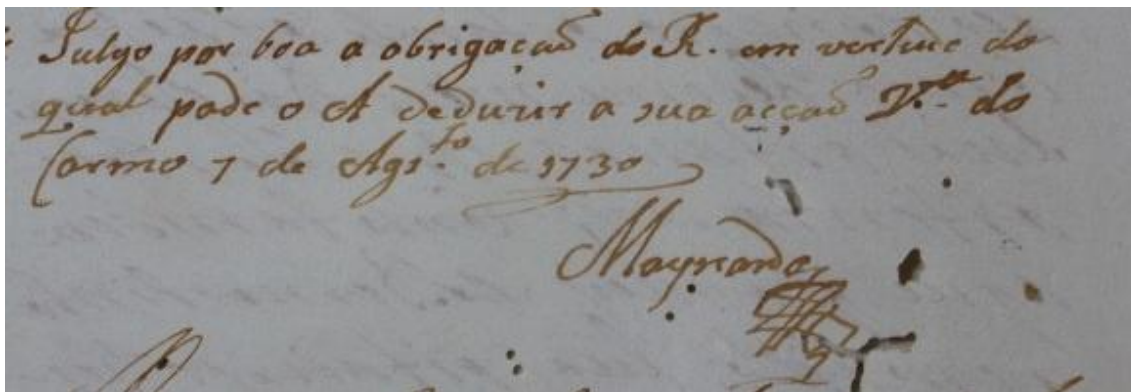 Julgo por boa a obrigaçaõ do R. em vertude do
qual pode o A deduzir a sua acçaõ V.ª do
Carmo 7 de Ags.to de 1730
Maynarde